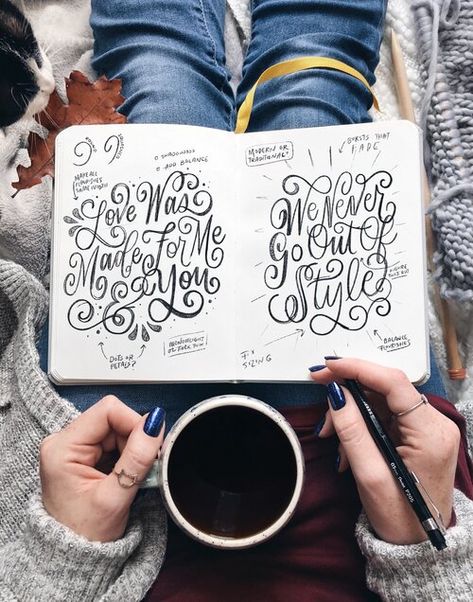 SHADOWING
ADD BALANCE
MAKE ALL
FLOURISHES
SAME WIDTH
Love Was
Made For Me
You
DOTS OR
PETALS?
MODERN OR
TRADITIONAL?
BURSTS THAT
FADE
We Never
Go Out Of
Style
FIX
SIZING
BALANCE
FLOURISHES